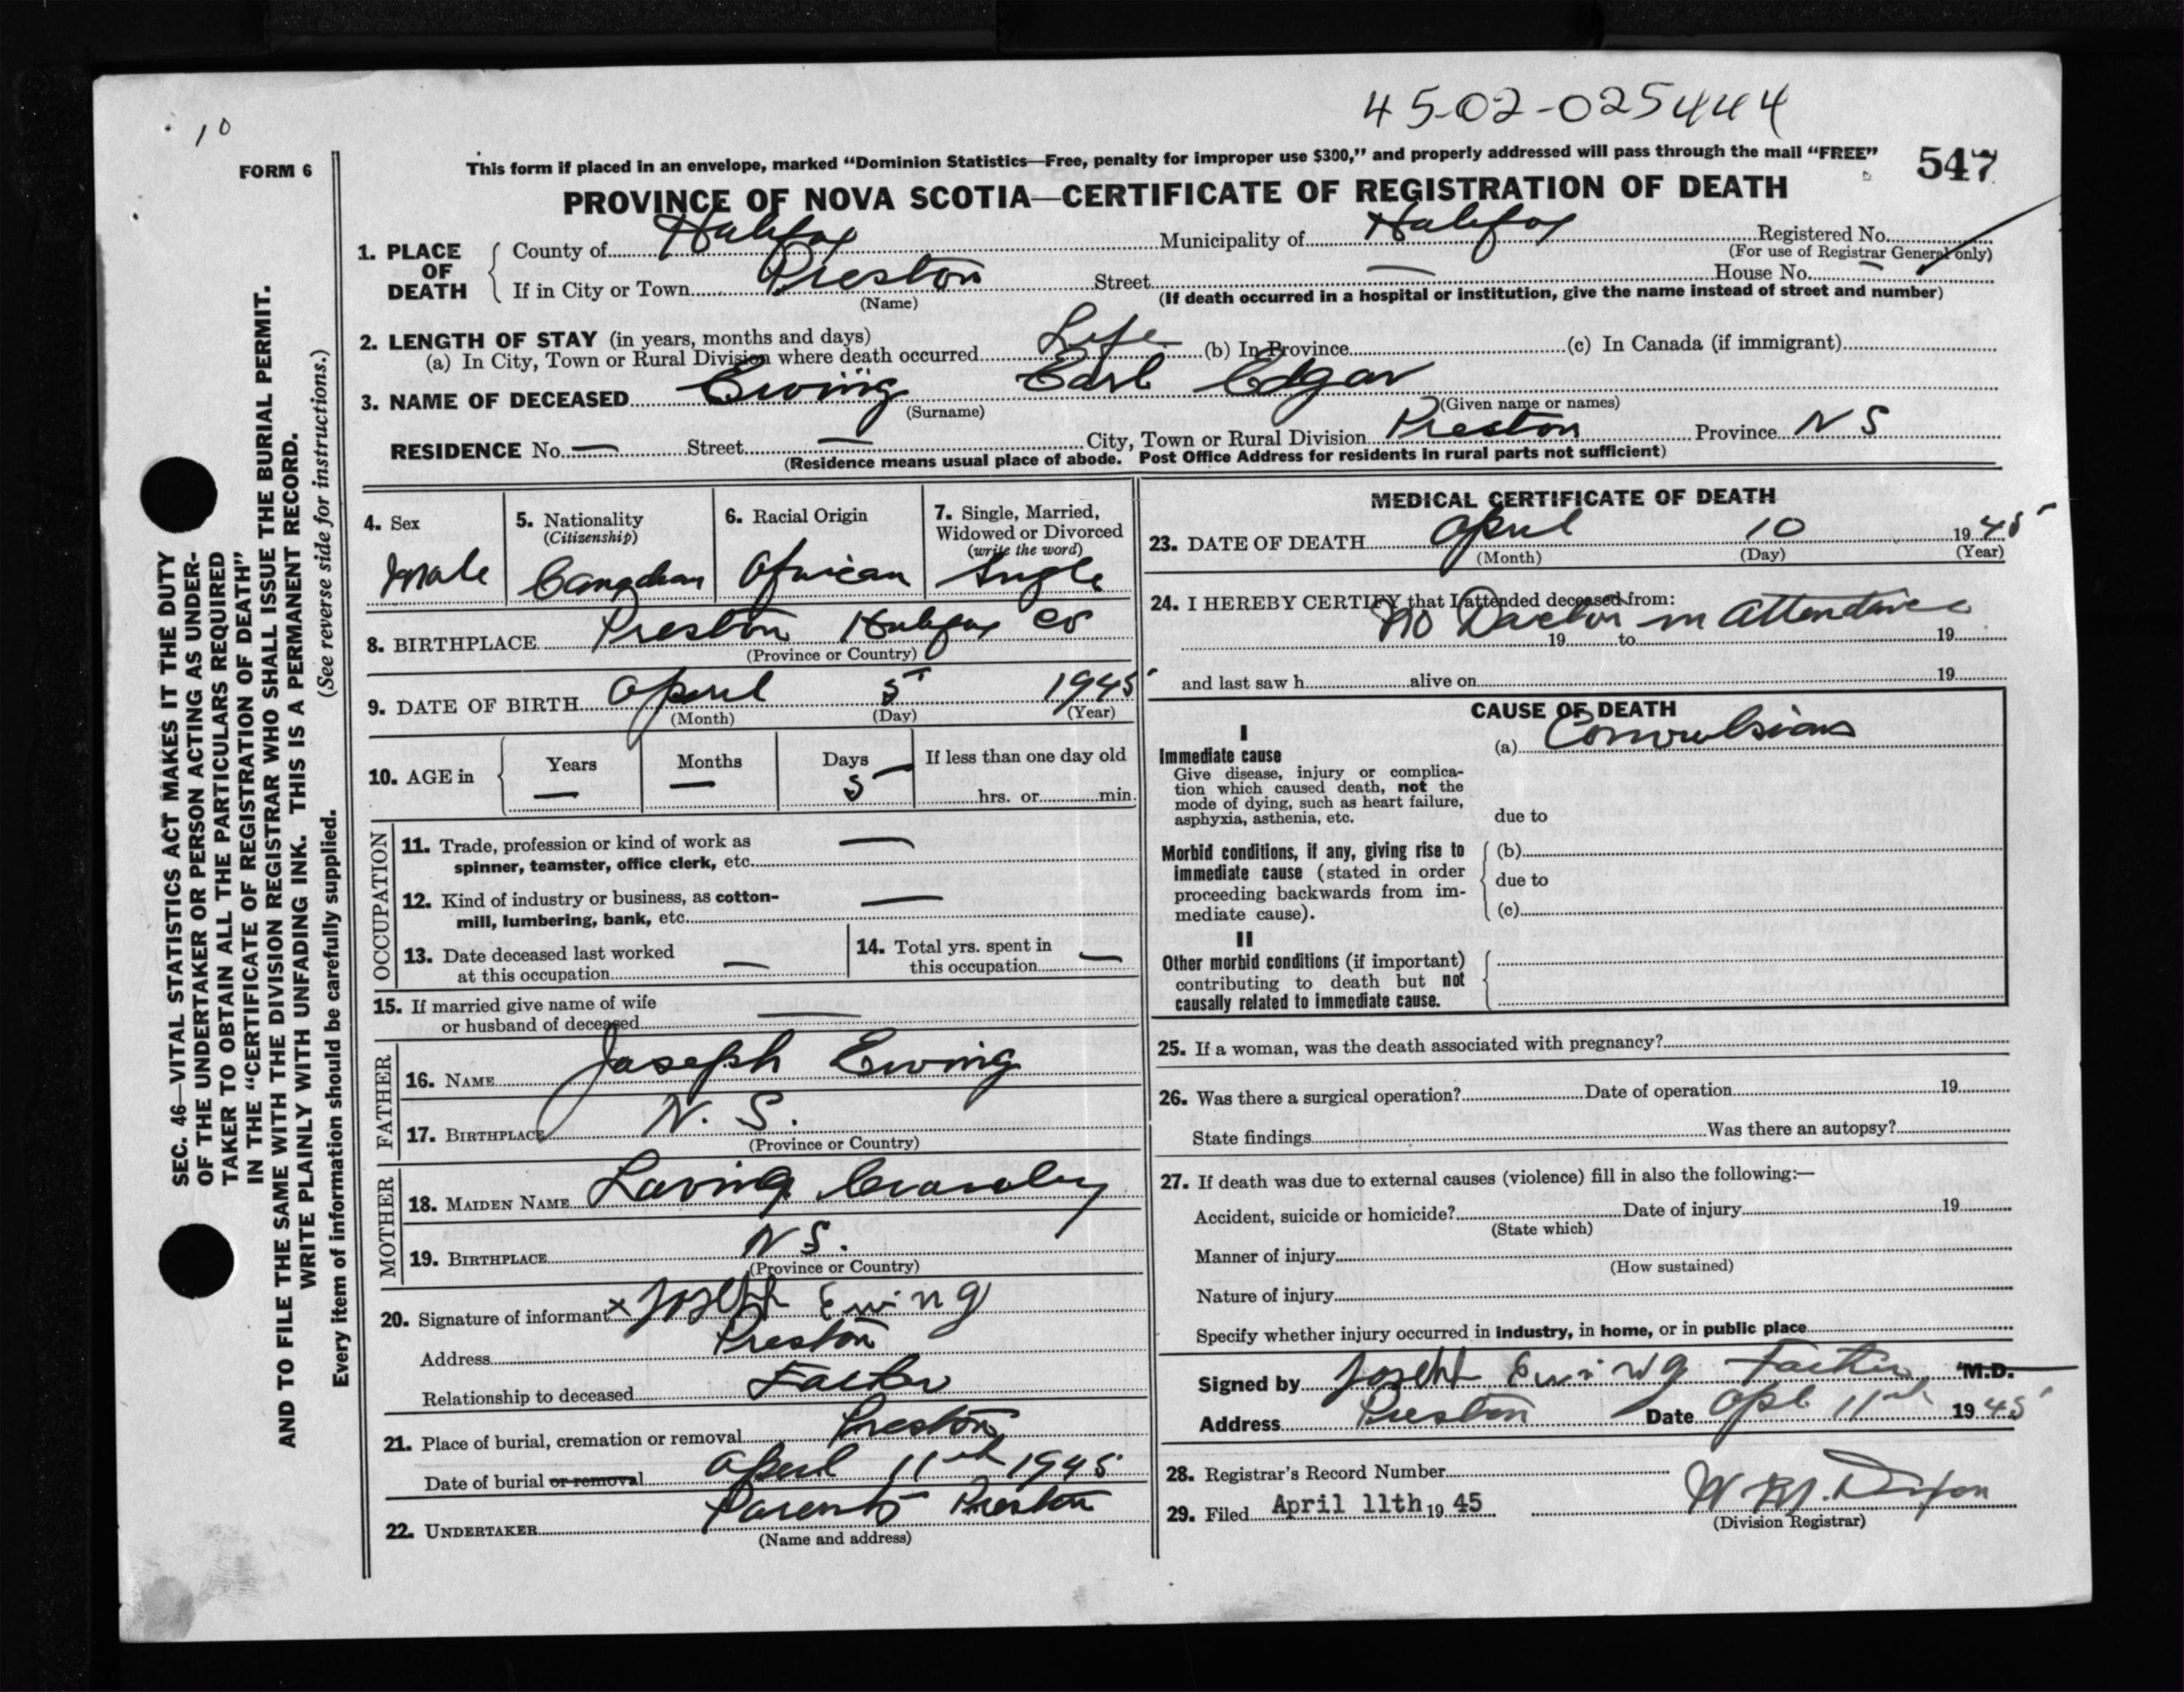 45-02-025444
10
FORM 6
This form if placed in an envelope, marked “Dominion Statistics—Free, penalty for improper use $300,” and properly addressed will pass through the mail “FREE”
547
PROVINCE OF NOVA SCOTIA—CERTIFICATE OF REGISTRATION OF DEATH
1. PLACE OF DEATH
County of Halifax Municipality of Halifax Registered No.
(For use of Registrar General only)
If in City or Town Preston Street — House No. —
(Name) (If death occurred in a hospital or institution, give the name instead of street and number)
2. LENGTH OF STAY (in years, months and days)
(a) In City, Town or Rural Division where death occurred Life (b) In Province (c) In Canada (if immigrant)
3. NAME OF DECEASED Ewing Earl Edgar
(Surname) (Given name or names)
RESIDENCE No. — Street — City, Town or Rural Division Preston Province N S
(Residence means usual place of abode. Post Office Address for residents in rural parts not sufficient)
4. Sex
Male
5. Nationality
(Citizenship)
Canadian
6. Racial Origin
African
7. Single, Married,
Widowed or Divorced
(write the word)
Single
8. BIRTHPLACE Preston Halifax Co
(Province or Country)
9. DATE OF BIRTH April 5 1945
(Month) (Day) (Year)
10. AGE in
Years Months Days If less than one day old
— — 5 — hrs. or min.
OCCUPATION
11. Trade, profession or kind of work as
spinner, teamster, office clerk, etc. —
12. Kind of industry or business, as cotton-
mill, lumbering, bank, etc. —
13. Date deceased last worked
at this occupation —
14. Total yrs. spent in
this occupation —
15. If married give name of wife
or husband of deceased —
FATHER
16. NAME Joseph Ewing
17. BIRTHPLACE N. S.
(Province or Country)
MOTHER
18. MAIDEN NAME
19. BIRTHPLACE N S.
(Province or Country)
20. Signature of informant x Joseph Ewing
Address Preston
Relationship to deceased Father
21. Place of burial, cremation or removal Preston
Date of burial or removal April 11th 1945
22. UNDERTAKER Parents Preston
(Name and address)
MEDICAL CERTIFICATE OF DEATH
23. DATE OF DEATH April 10 1945
(Month) (Day) (Year)
24. I HEREBY CERTIFY that I attended deceased from:
No Doctor in attendance
19 to 19
and last saw h alive on 19
CAUSE OF DEATH
I
Immediate cause
Give disease, injury or complica-
tion which caused death, not the
mode of dying, such as heart failure,
asphyxia, asthenia, etc.
(a) Convulsions
due to
Morbid conditions, if any, giving rise to
immediate cause (stated in order
proceeding backwards from im-
mediate cause).
(b)
due to
(c)
II
Other morbid conditions (if important)
contributing to death but not
causally related to immediate cause.
25. If a woman, was the death associated with pregnancy?
26. Was there a surgical operation? Date of operation 19
State findings Was there an autopsy?
27. If death was due to external causes (violence) fill in also the following:—
Accident, suicide or homicide? Date of injury 19
(State which)
Manner of injury
(How sustained)
Nature of injury
Specify whether injury occurred in industry, in home, or in public place
Signed by Joseph Ewing Father M.D.
Address Preston Date Apl 11th 1945
28. Registrar's Record Number
29. Filed April 11th 1945 W M. Dixon
(Division Registrar)
SEC. 46—VITAL STATISTICS ACT MAKES IT THE DUTY
OF THE UNDERTAKER OR PERSON ACTING AS UNDER-
TAKER TO OBTAIN ALL THE PARTICULARS REQUIRED
IN THE “CERTIFICATE OF REGISTRATION OF DEATH”
AND TO FILE THE SAME WITH THE DIVISION REGISTRAR WHO SHALL ISSUE THE BURIAL PERMIT.
WRITE PLAINLY WITH UNFADING INK. THIS IS A PERMANENT RECORD.
Every item of information should be carefully supplied. (See reverse side for instructions.)